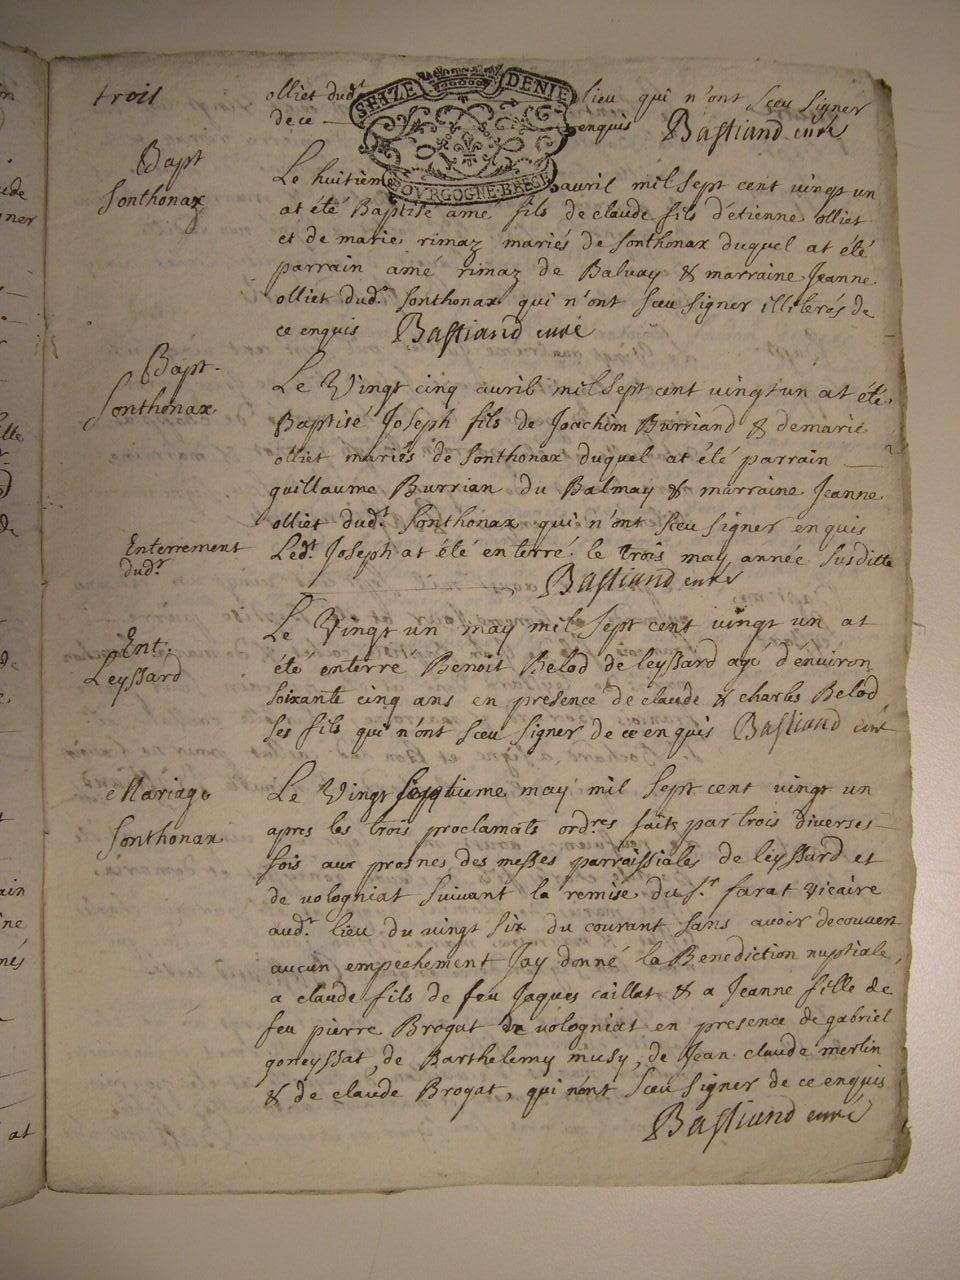 trois
olliet dud.t lieu qui n'ont sceu signer
de ce enquis Bastiand curé
SEIZE DENIE
BOURGOGNE·BRESSE
Bapt
Sonthonax
Le huitieme avril mil sept cent vingt un
at été Baptisé amé fils de claude fils d'étienne olliet
et de marie rimaz mariés de Sonthonax duquel at élé
parrain amé rimaz de Balvay & marraine Jeanne
olliet dud.t Sonthonax qui n'ont sceu signer illiterés de
ce enquis Bastiand curé
Bapt.
Sonthonax
Le Vingt cinq avril mil sept cent vingt un at été
Baptisé Joseph fils de Joachim Burriand & de marie
olliet mariés de Sonthonax duquel at élé parrain
guillaume Burrian du Balmay & marraine Jeanne
olliet dud.t Sonthonax qui n'ont sceu signer enquis
Enterrement
dud.t
Led.t Joseph at élé enterré le trois may année susditte
Bastiand curé
Ent.
Leyssard
Le Vingt un may mil sept cent vingt un at
été enterré Benoit Belod de leyssard agé d'environ
soixante cinq ans en presence de claude & charles Belod
ses fils qui n'ont sceu signer de ce enquis Bastiand curé
Mariage
Sonthonax
Le Vingt septieme may mil sept cent vingt un
apres les trois proclamats ord.res faits par trois diverses
fois aux prosnes des messes parroissiales de leyssard et
de vologniat suivant la remise du s.r farat vicaire
aud.t lieu du vingt six du courant sans avoir decouvert
aucun empechement Jay donné la Benediction nuptiale,
a claude fils de feu Jaques caillat & a Jeanne fille de
feu pierre Brogat de vologniat en presence de gabriel
goneyssat, de Barthelemy musy, de Jean claude merlin
& de claude Brogat, qui n'ont sceu signer de ce enquis
Bastiand curé